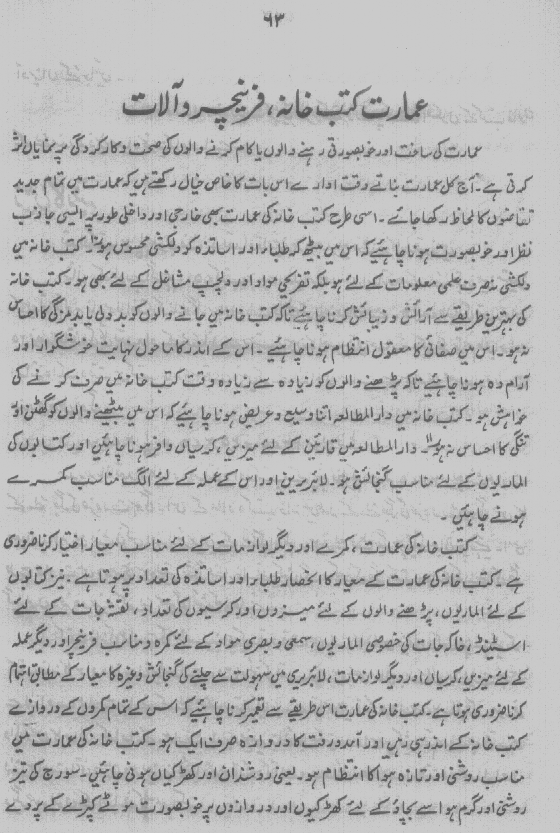 ۶۳
عمارت کتب خانہ، فرنیچر و آلات
عمارت کی ساخت اور خوبصورتی رہنے والوں یا کام کرنے والوں کی صحت و کارکردگی پر نمایاں اثر
کرتی ہے۔ آج کل عمارت بناتے وقت ادارے اس بات کا خاص خیال رکھتے ہیں کہ عمارت میں تمام جدید
تقاضوں کا لحاظ رکھا جائے۔ اسی طرح کتب خانہ کی عمارت بھی خارجی اور داخلی طور پر ایسی جاذب
نظر اور خوبصورت ہونا چاہیئے کہ اس میں بیٹھ کر طلباء اور اساتذہ کو دلکشی محسوس ہو۔ کتب خانہ میں
دلکشی نہ صرف علمی معلومات کے لئے ہو بلکہ تفریحی مواد اور دلچسپ مشاغل کے لئے بھی ہو۔ کتب خانہ
کی بہترین طریقے سے آرائش و زیبائش کرنا چاہیئے تاکہ کتب خانہ میں جانے والوں کو بددلی یا بدمزگی کا احساس
نہ ہو۔ اس میں صفائی کا معقول انتظام ہونا چاہیئے۔ اس کے اندر کا ماحول نہایت خوشگوار اور
آرام دہ ہونا چاہیئے تاکہ پڑھنے والوں کو زیادہ سے زیادہ وقت کتب خانہ میں صرف کرنے کی
خواہش ہو۔ کتب خانہ میں دارالمطالعہ اتنا وسیع و عریض ہونا چاہیئے کہ اس میں بیٹھنے والوں کو گھٹن اور
تنگی کا احساس نہ ہو۔ دارالمطالعہ میں قارئین کے لئے میزیں، کرسیاں وافر ہونا چاہیئں اور کتابوں کی
الماریوں کے لئے مناسب گنجائش ہو۔ لائبریرین اور اس کے عملہ کے لئے الگ مناسب کمرے
ہونے چاہیئں۔
کتب خانہ کی عمارت، کمرے اور دیگر لوازمات کے لئے مناسب معیار اختیار کرنا ضروری
ہے۔ کتب خانہ کی عمارت کے معیار کا انحصار طلباء اور اساتذہ کی تعداد پر ہوتا ہے۔ نیز کتابوں
کے لئے الماریوں، پڑھنے والوں کے لئے میزوں اور کرسیوں کی تعداد، نقشہ جات کے لئے
اسٹینڈ، خاکہ جات کی خصوصی الماریوں، سمعی و بصری مواد کے لئے کمرہ و مناسب فرنیچر اور دیگر عملہ
کے لئے میزیں، کرسیاں اور دیگر لوازمات، لائبریری میں سہولت سے چلنے کی گنجائش وغیرہ کا معیار کے مطابق اہتمام
کرنا ضروری ہوتا ہے۔ کتب خانہ کی عمارت اس طریقے سے تعمیر کرنا چاہیئے کہ اس کے تمام کمروں کے دروازے
کتب خانہ کے اندر ہی رہیں اور آمدورفت کا دروازہ صرف ایک ہو۔ کتب خانہ کی عمارت میں
مناسب روشنی اور تازہ ہوا کا انتظام ہو۔ یعنی روشندان اور کھڑکیاں ہونی چاہئیں۔ سورج کی تیز
روشنی اور گرم ہوا سے بچاؤ کے لئے کھڑکیوں اور دروازوں پر خوبصورت موٹے کپڑے کے پردے